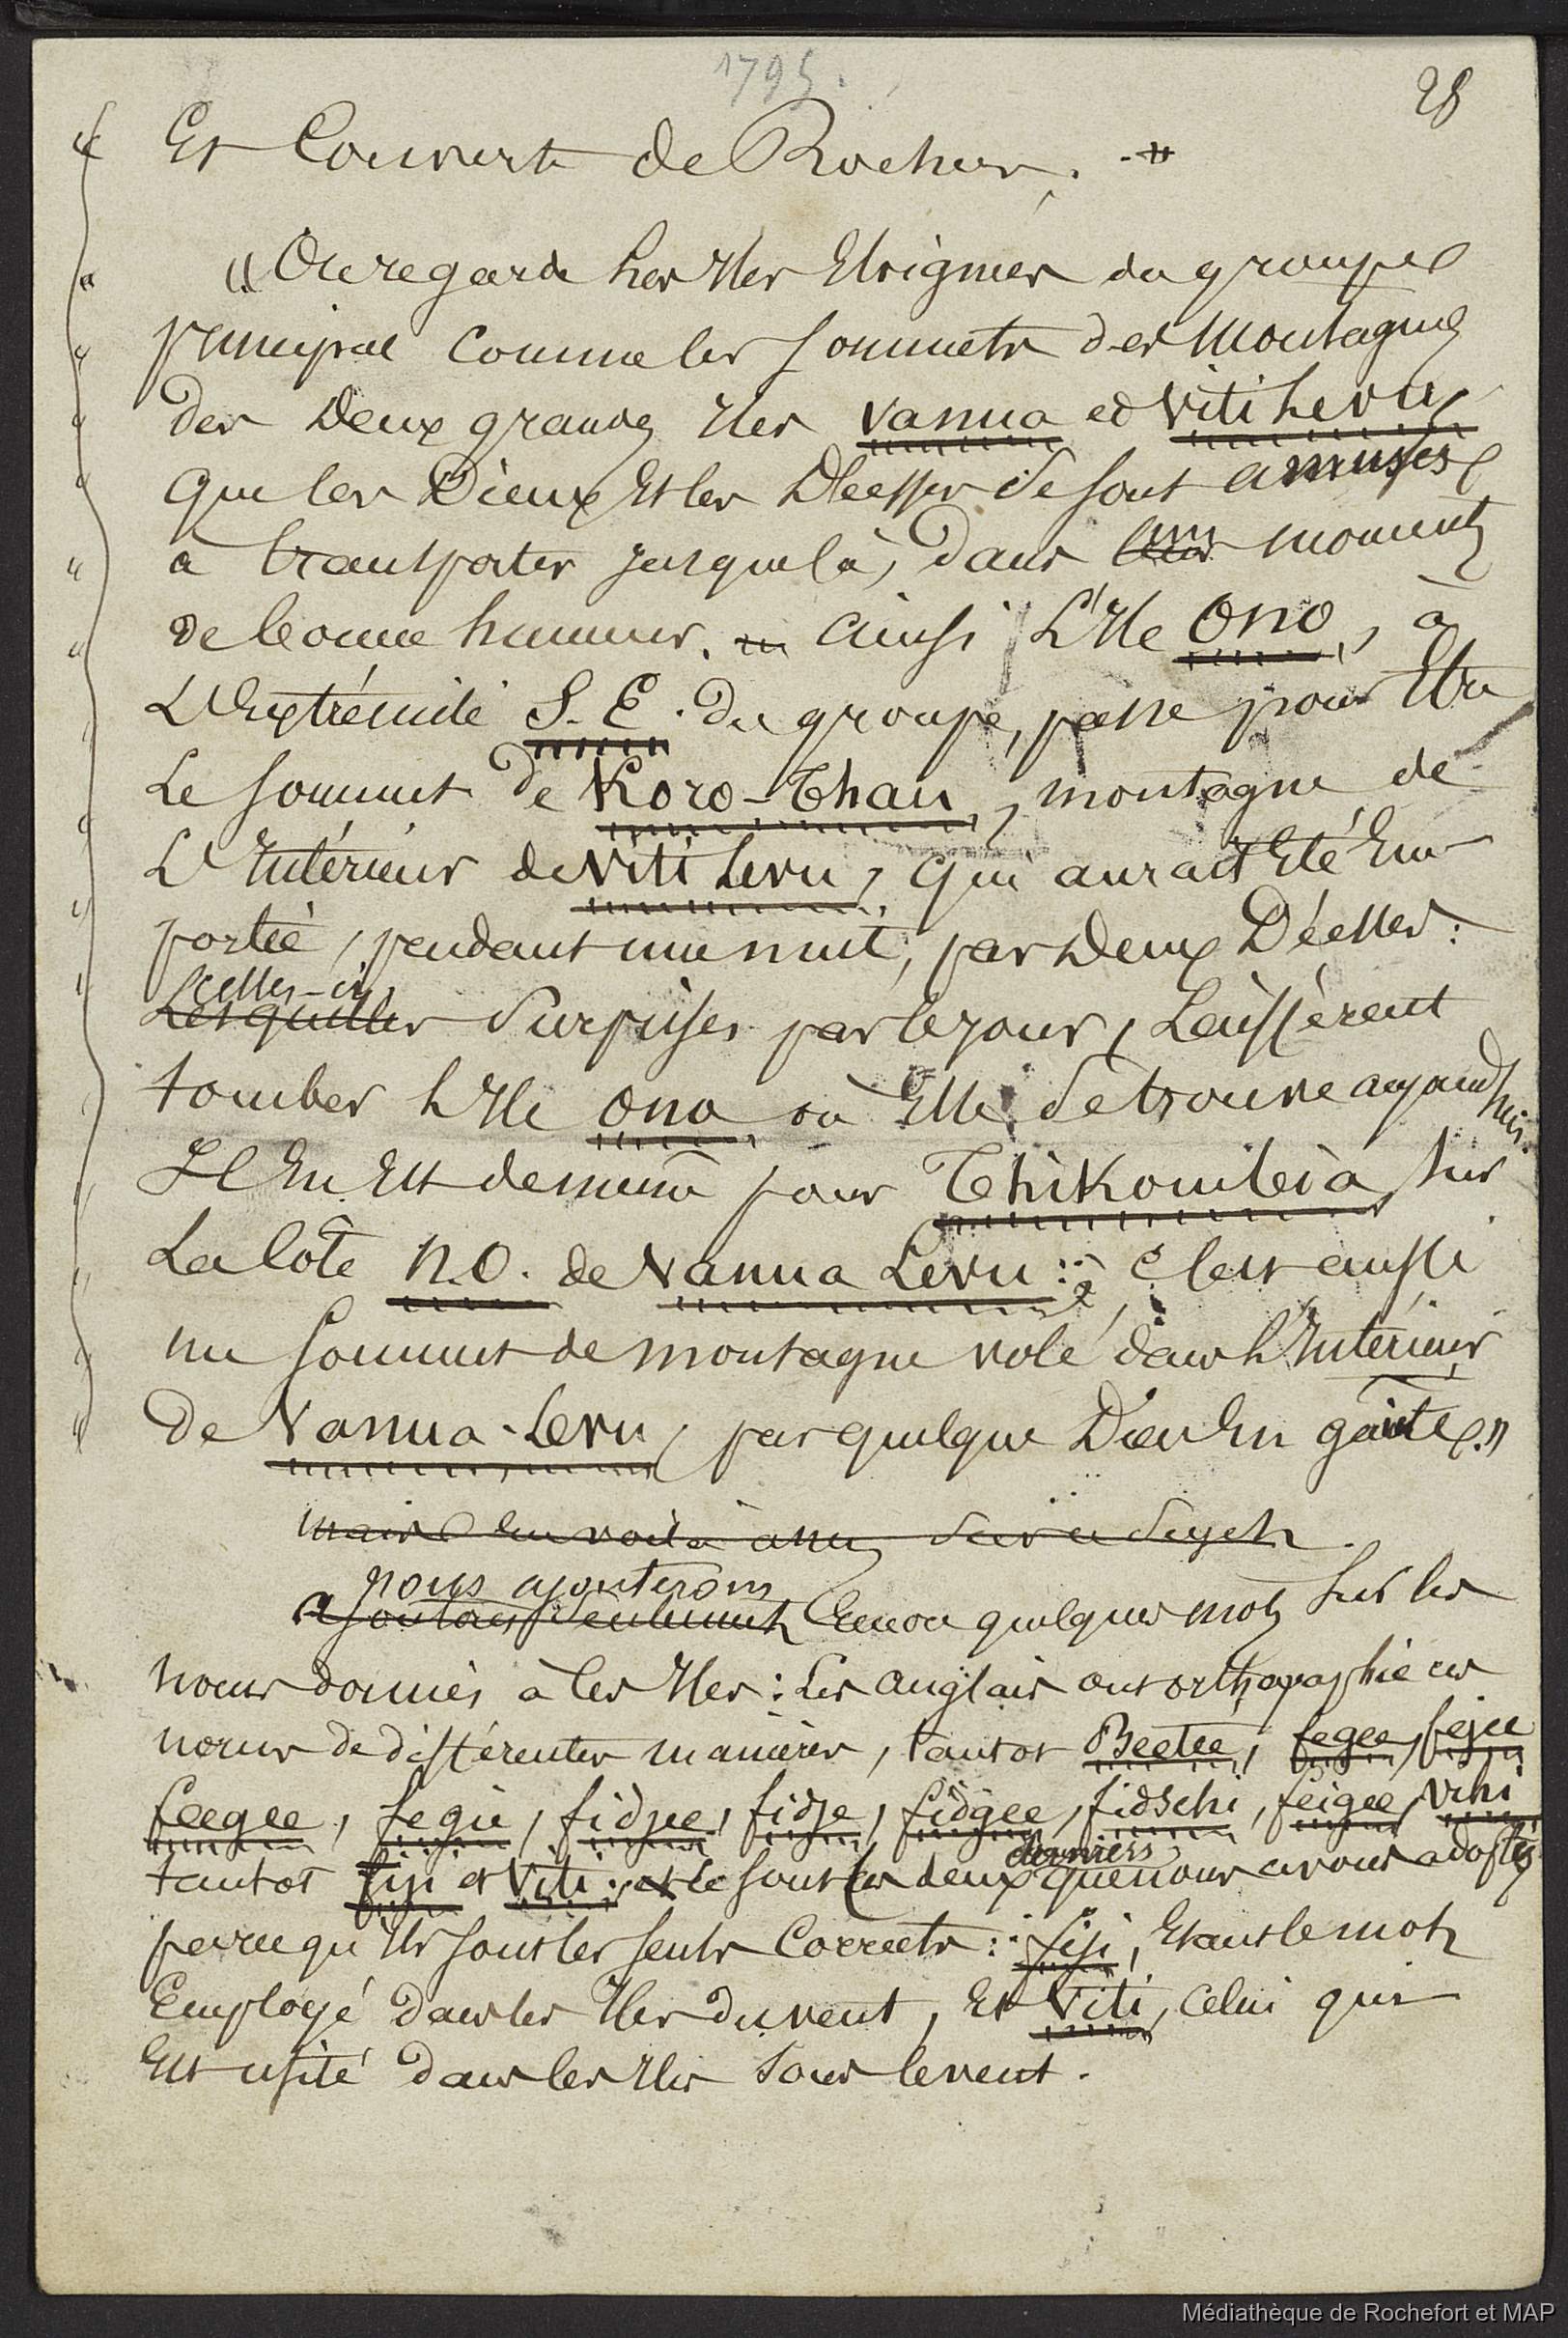 1795.
28
Et Couvert de Rochers. "
"On regarde les Iles Eloignées du groupe
principal Comme les Sommets des Montagnes
des Deux grandes Iles Vanua et Viti Levu,
que les Dieux Et les Déesses Se sont amusés
à transporter jusque là, dans leurs moments
de bonne humeur. Ainsi L'Ile Ono, à
L'Extrémité S.E. du groupe, passe pour Etre
Le Sommet de Koro-Thau, montagne de
L'Intérieur de Viti Levu, qui aurait Eté Em-
portée, pendant une nuit, par Deux Déesses:
celles-ci,
Lesquelles Surprises par le jour, Laissèrent
tomber L'Ile Ono où Elle Se trouve aujourd'hui.
Il En Est de même pour Thikombia, Sur
La Côte N.O. de Vanua Levu: c'est aussi
un Sommet de montagne volé dans L'Intérieur
De Vanua-Levu, par quelque Dieu En gaîté."
mais En voilà assez Sur ce Sujet.
nous ajouterons
ajoutons Seulement Encore quelques mots Sur les
noms donnés à ces Iles: Les Anglais ont orthographié ces
noms de différentes manières, tantôt Beetee, fegee, fejee
feegee, fegie, fidjee, fidje, fidgee, fidschi, feigee, Vihi
tantôt fiji et Viti: ce sont ces deux derniers que nous avons adoptés
parce qu'Ils sont les seuls Corrects: fiji, Etant le mot
Employé dans les Iles du vent, Et Viti, celui qui
Est usité dans les Iles Sous le vent.
Médiathèque de Rochefort et MAP